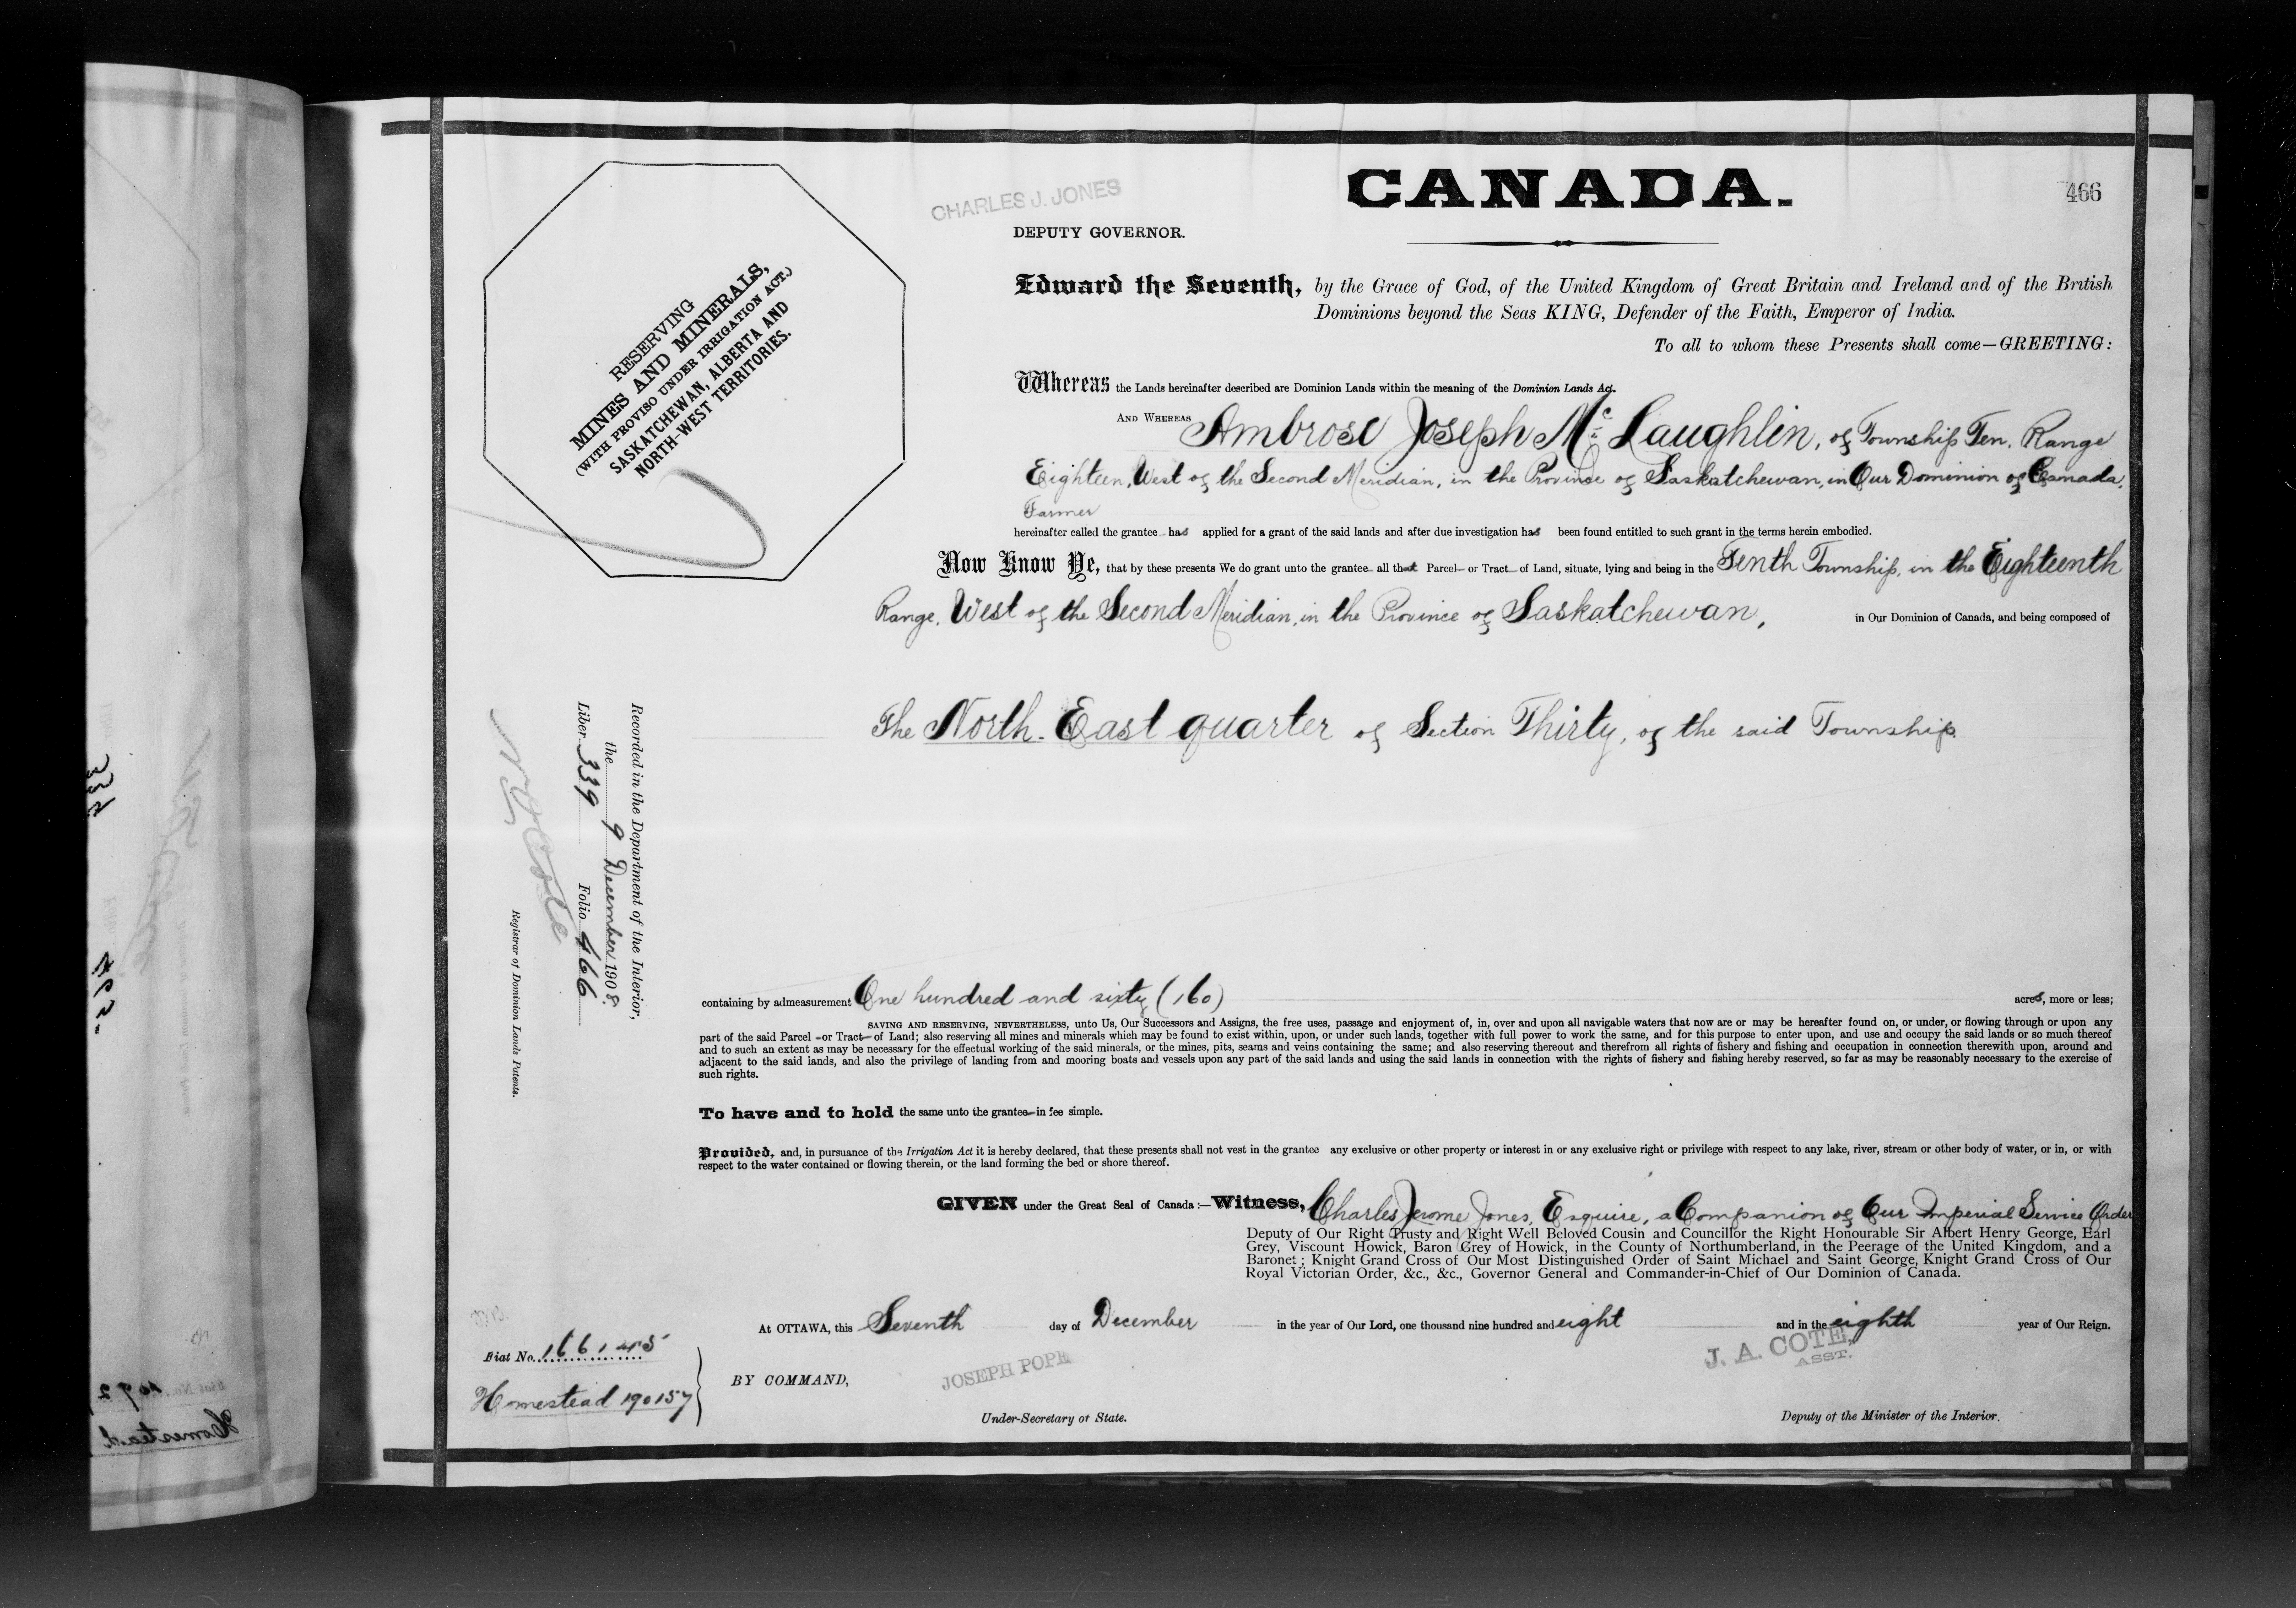 CANADA.
466
CHARLES J. JONES
DEPUTY GOVERNOR.
RESERVING
MINES AND MINERALS,
(WITH PROVISO UNDER IRRIGATION ACT.)
SASKATCHEWAN, ALBERTA AND
NORTH-WEST TERRITORIES.
Edward the Seventh, by the Grace of God, of the United Kingdom of Great Britain and Ireland and of the British
Dominions beyond the Seas KING, Defender of the Faith, Emperor of India.
To all to whom these Presents shall come—GREETING:
Whereas the Lands hereinafter described are Dominion Lands within the meaning of the Dominion Lands Act.
AND WHEREAS Ambrose Joseph McLaughlin, of Township Ten, Range
Eighteen, West of the Second Meridian, in the Province of Saskatchewan, in Our Dominion of Canada,
Farmer
hereinafter called the grantee has applied for a grant of the said lands and after due investigation has been found entitled to such grant in the terms herein embodied.
Now Know Ye, that by these presents We do grant unto the grantee all that Parcel or Tract of Land, situate, lying and being in the Tenth Township, in the Eighteenth
Range, West of the Second Meridian, in the Province of Saskatchewan, in Our Dominion of Canada, and being composed of
The North-East quarter of Section Thirty, of the said Township.
Recorded in the Department of the Interior,
the 9 December 1908.
Liber 339 Folio 466
N O Cote
Registrar of Dominion Lands Patents.
containing by admeasurement One hundred and sixty (160) acres, more or less;
SAVING AND RESERVING, NEVERTHELESS, unto Us, Our Successors and Assigns, the free uses, passage and enjoyment of, in, over and upon all navigable waters that now are or may be hereafter found on, or under, or flowing through or upon any
part of the said Parcel or Tract of Land; also reserving all mines and minerals which may be found to exist within, upon, or under such lands, together with full power to work the same, and for this purpose to enter upon, and use and occupy the said lands or so much thereof
and to such an extent as may be necessary for the effectual working of the said minerals, or the mines, pits, seams and veins containing the same; and also reserving thereout and therefrom all rights of fishery and fishing and occupation in connection therewith upon, around and
adjacent to the said lands, and also the privilege of landing from and mooring boats and vessels upon any part of the said lands and using the said lands in connection with the rights of fishery and fishing hereby reserved, so far as may be reasonably necessary to the exercise of
such rights.
To have and to hold the same unto the grantee in fee simple.
Provided, and, in pursuance of the Irrigation Act it is hereby declared, that these presents shall not vest in the grantee any exclusive or other property or interest in or any exclusive right or privilege with respect to any lake, river, stream or other body of water, or in, or with
respect to the water contained or flowing therein, or the land forming the bed or shore thereof.
GIVEN under the Great Seal of Canada:—Witness, Charles Jerome Jones, Esquire, a Companion of Our Imperial Service Order
Deputy of Our Right Trusty and Right Well Beloved Cousin and Councillor the Right Honourable Sir Albert Henry George, Earl
Grey, Viscount Howick, Baron Grey of Howick, in the County of Northumberland, in the Peerage of the United Kingdom, and a
Baronet; Knight Grand Cross of Our Most Distinguished Order of Saint Michael and Saint George, Knight Grand Cross of Our
Royal Victorian Order, &c., &c., Governor General and Commander-in-Chief of Our Dominion of Canada.
At OTTAWA, this Seventh day of December in the year of Our Lord, one thousand nine hundred and eight and in the eighth year of Our Reign.
Fiat No. 166145
Homestead 190157
BY COMMAND,
JOSEPH POPE
Under-Secretary of State.
J. A. COTE,
ASST.
Deputy of the Minister of the Interior.